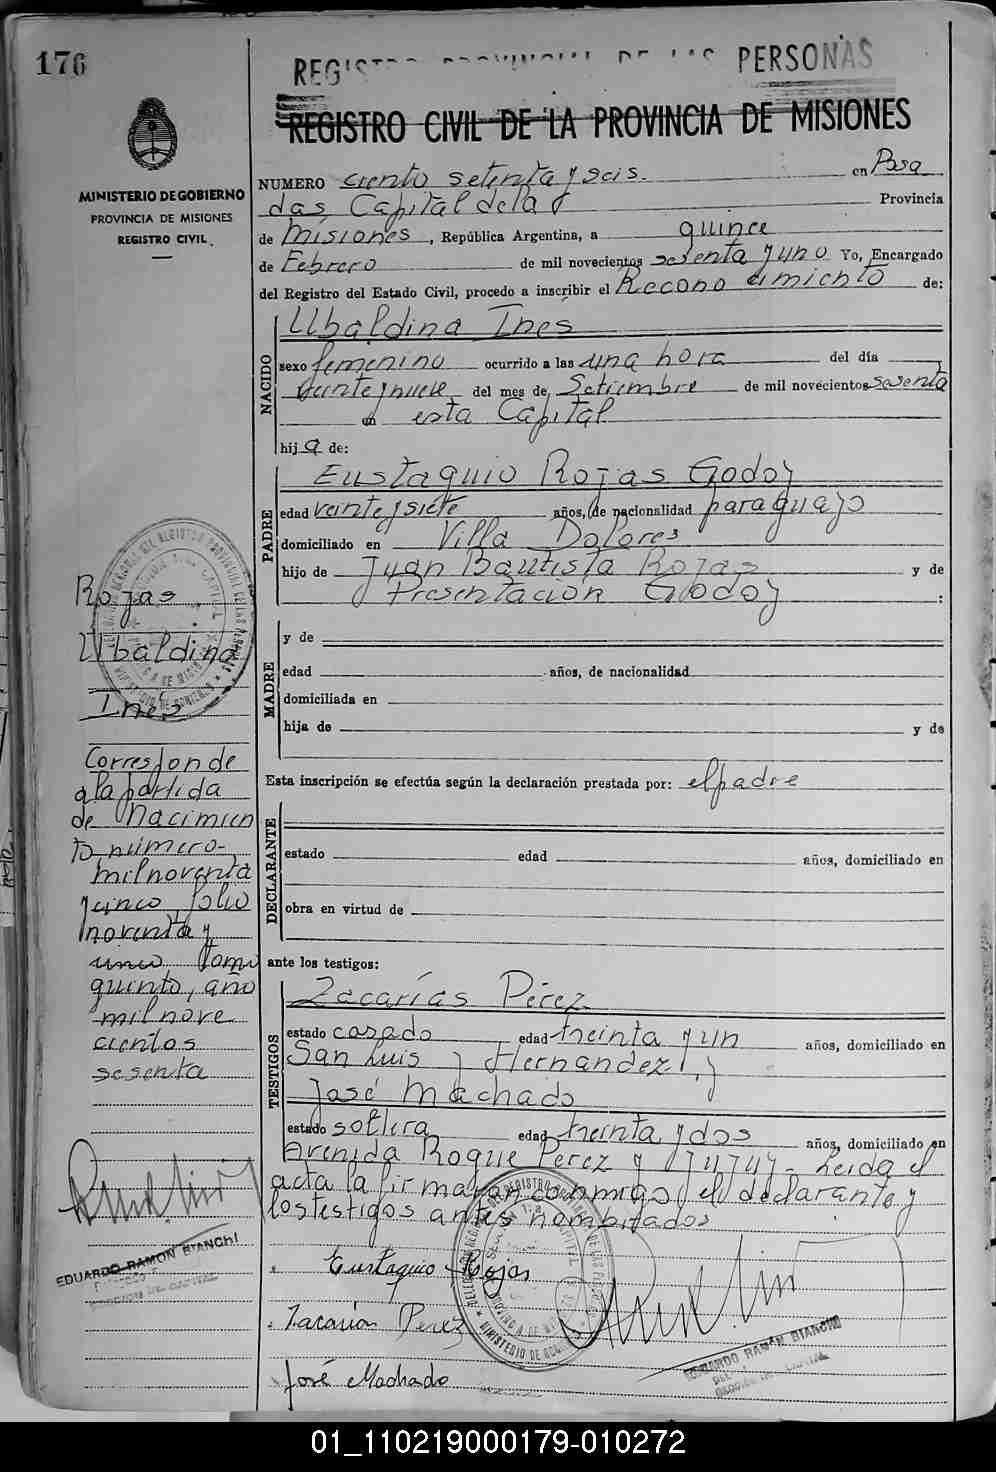 176
REGISTRO PROVINCIAL DE LAS PERSONAS
REGISTRO CIVIL DE LA PROVINCIA DE MISIONES
MINISTERIO DE GOBIERNO
PROVINCIA DE MISIONES
REGISTRO CIVIL
NUMERO ciento setenta y seis. en Posa
das, Capital de la Provincia
de Misiones, República Argentina, a quince
de Febrero de mil novecientos sesenta y uno Yo, Encargado
del Registro del Estado Civil, procedo a inscribir el Reconocimiento de:
NACIDO
Ubaldina Inés
sexo femenino ocurrido a las una hora del día
veinte y nueve del mes de Setiembre de mil novecientos sesenta
en esta Capital
hija de:
PADRE
Eustaquio Rojas Godoy
edad veinte y siete años, de nacionalidad paraguayo
domiciliado en Villa Dolores
hijo de Juan Bautista Rojas y de
Presentación Godoy :
MADRE
y de
edad años, de nacionalidad
domiciliada en
hija de y de
Esta inscripción se efectúa según la declaración prestada por: el padre
DECLARANTE
estado edad años, domiciliado en
obra en virtud de
ante los testigos:
TESTIGOS
Zacarías Pérez
estado casado edad treinta y un años, domiciliado en
San Luis y Hernandez, y
José Machado
estado soltera edad treinta y dos años, domiciliado en
Avenida Roque Perez y Jujuy - Leida el
acta la firmaran conmigo, el declarante y
los testigos antes nombrados
Eustaquio Rojas
Zacarias Perez
José Machado
EDUARDO RAMON BIANCHI
Rojas
Ubaldina
Inés
Corresponde
a la partida
de Nacimien
to número
mil noventa
y cinco, folio
noventa y
uno tomo
quinto, año
mil nove
cientos
sesenta
EDUARDO RAMON BIANCHI
01_110219000179-010272